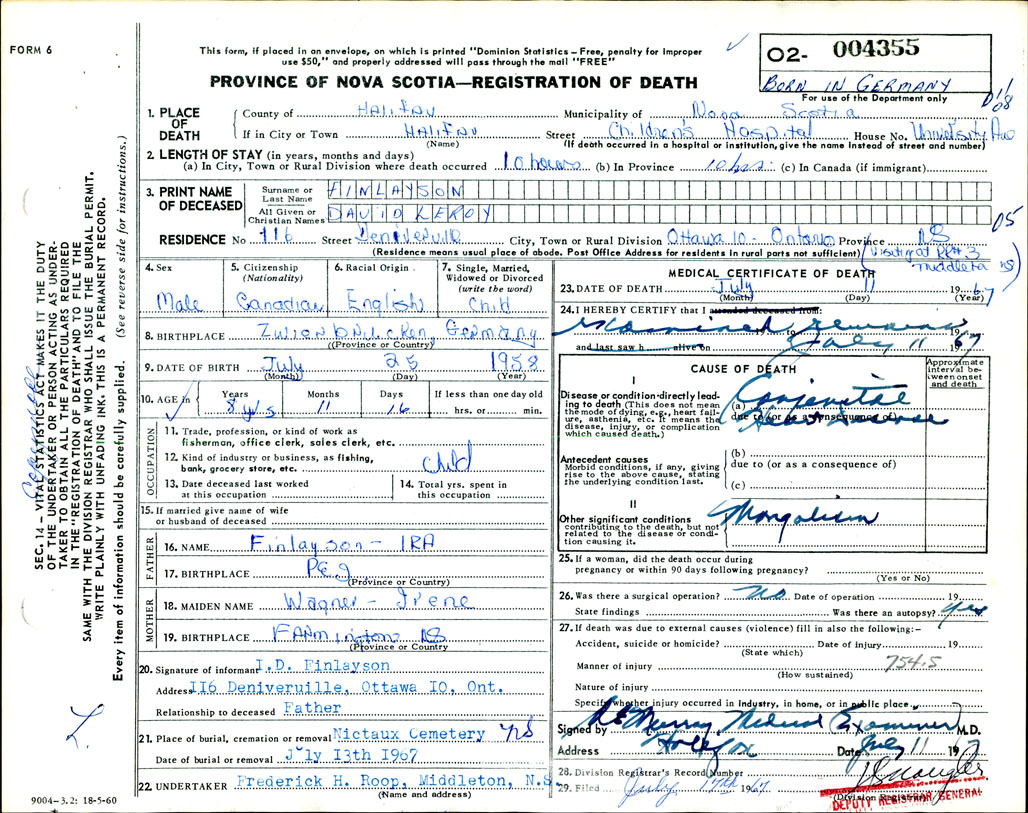 FORM 6
This form, if placed in an envelope, on which is printed "Dominion Statistics – Free, penalty for improper
use $50," and properly addressed will pass through the mail "FREE"
PROVINCE OF NOVA SCOTIA—REGISTRATION OF DEATH
O2- 004355
BORN IN GERMANY
For use of the Department only
08
1. PLACE OF DEATH
County of HALIFAX Municipality of Nova Scotia
If in City or Town HALIFAX Street Children's Hospital House No. University Ave
(Name) (If death occurred in a hospital or institution, give the name instead of street and number)
2. LENGTH OF STAY (in years, months and days)
(a) In City, Town or Rural Division where death occurred 10 hours (b) In Province 10 hrs. (c) In Canada (if immigrant)
3. PRINT NAME OF DECEASED
Surname or Last Name FINLAYSON
All Given or Christian Names DAVID LEROY
05
RESIDENCE No 116 Street Deniverville City, Town or Rural Division Ottawa 10 - Ontario Province NS
(Residence means usual place of abode. Post Office Address for residents in rural parts not sufficient)
(Visiting at RR# 3
Middleton NS)
4. Sex
Male
5. Citizenship
(Nationality)
Canadian
6. Racial Origin
English
7. Single, Married,
Widowed or Divorced
(write the word)
Child
8. BIRTHPLACE Germany
(Province or Country)
9. DATE OF BIRTH July 25 1958
(Month) (Day) (Year)
10. AGE in
Years Months Days If less than one day old
8 yrs 11 16 hrs. or min.
OCCUPATION
11. Trade, profession, or kind of work as
fisherman, office clerk, sales clerk, etc.
12. Kind of industry or business, as fishing,
bank, grocery store, etc.
Child
13. Date deceased last worked
at this occupation
14. Total yrs. spent in
this occupation
15. If married give name of wife
or husband of deceased
FATHER
16. NAME Finlayson - IRA
17. BIRTHPLACE PEI
(Province or Country)
MOTHER
18. MAIDEN NAME Wagner - Irene
19. BIRTHPLACE FARMington NS
(Province or Country
20. Signature of informant I.D. Finlayson
Address II6 Deniveruille, Ottawa IO, Ont.
Relationship to deceased Father
21. Place of burial, cremation or removal Nictaux Cemetery NS
Date of burial or removal July 13th 1967
22. UNDERTAKER Frederick H. Roop, Middleton, N.S.
(Name and address)
MEDICAL CERTIFICATE OF DEATH
23. DATE OF DEATH July 11 1967
(Month) (Day) (Year)
24. I HEREBY CERTIFY that I attended deceased from:
examined remains 19
and last saw h alive on July 11 1967
CAUSE OF DEATH
Approximate interval between onset and death
I
Disease or condition directly leading to death (This does not mean the mode of dying, e.g., heart failure, asthenia, etc. It means the disease, injury, or complication which caused death.)
(a) Congenital
due to (or as a consequence of)
Heart Disease
Antecedent causes
Morbid conditions, if any, giving rise to the above cause, stating the underlying condition last.
(b)
due to (or as a consequence of)
(c)
II
Other significant conditions
contributing to the death, but not related to the disease or condition causing it.
Mongolism
25. If a woman, did the death occur during
pregnancy or within 90 days following pregnancy?
(Yes or No)
26. Was there a surgical operation? No Date of operation 19
State findings Was there an autopsy? Yes
27. If death was due to external causes (violence) fill in also the following:–
Accident, suicide or homicide? Date of injury 19
(State which)
Manner of injury 754.5
(How sustained)
Nature of injury
Specify whether injury occurred in industry, in home, or in public place
Signed by Murray Medical Examiner M.D.
Address Halifax Date July 11 1967
28. Division Registrar's Record Number
29. Filed July 17th 1967
(Division Registrar)
DEPUTY REGISTRAR GENERAL
9004–3.2: 18-5-60
SEC. 14 – VITAL STATISTICS ACT MAKES IT THE DUTY
OF THE UNDERTAKER OR PERSON ACTING AS UNDER-
TAKER TO OBTAIN ALL THE PARTICULARS REQUIRED
IN THE "REGISTRATION OF DEATH" AND TO FILE THE
SAME WITH THE DIVISION REGISTRAR WHO SHALL ISSUE THE BURIAL PERMIT.
WRITE PLAINLY WITH UNFADING INK. THIS IS A PERMANENT RECORD.
Every item of information should be carefully supplied. (See reverse side for instructions.)